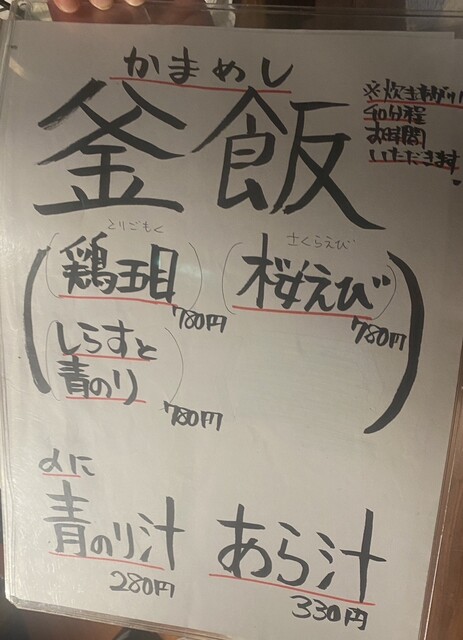 かまめし
釜飯
※炊き上がり
40分程
お時間
いただきます
とりごもく
鶏五目
780円
さくらえび
桜えび
780円
しらすと
青のり
780円
青のり汁
280円
あら汁
330円